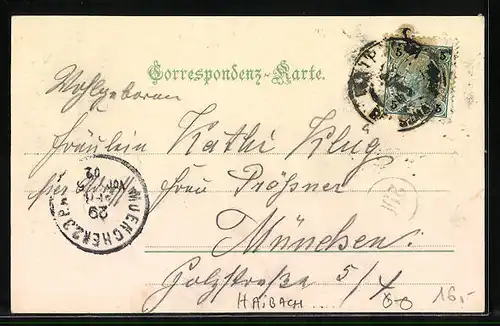 Correspondenz-Karte.
5 5
5 5
Wohlgeboren
Fräulein Kathi Klug
Frau Prößner
München.
Holzstraße 5/4
MUENCHEN 2
29
02
HAIBACH....
16,-